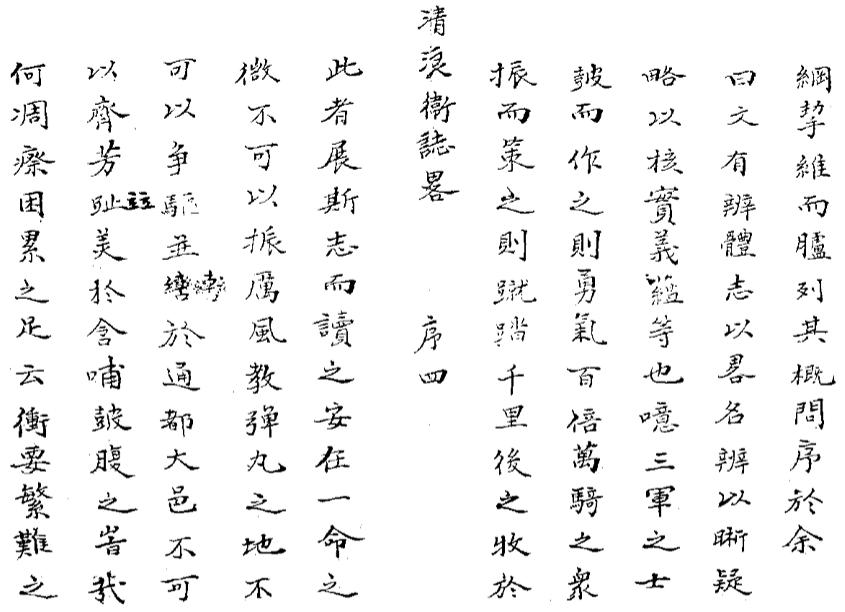 綱挈維而臚列其概問序於余
曰文有辨體志以畧名辨以晰疑
略以核實義等也噫三軍之士
皷而作之則勇氣百倍萬騎之眾
振而策之則蹴踏千里後之牧於
清浪衛誌畧 序四
此者展斯志而讀之安在一命之
微不可以振厲風教彈丸之地不
可以争驅並轡於通都大邑不可
以齊芳趾美於含哺皷腹之耆哉
何凋瘵困累之足云衝要繁難之